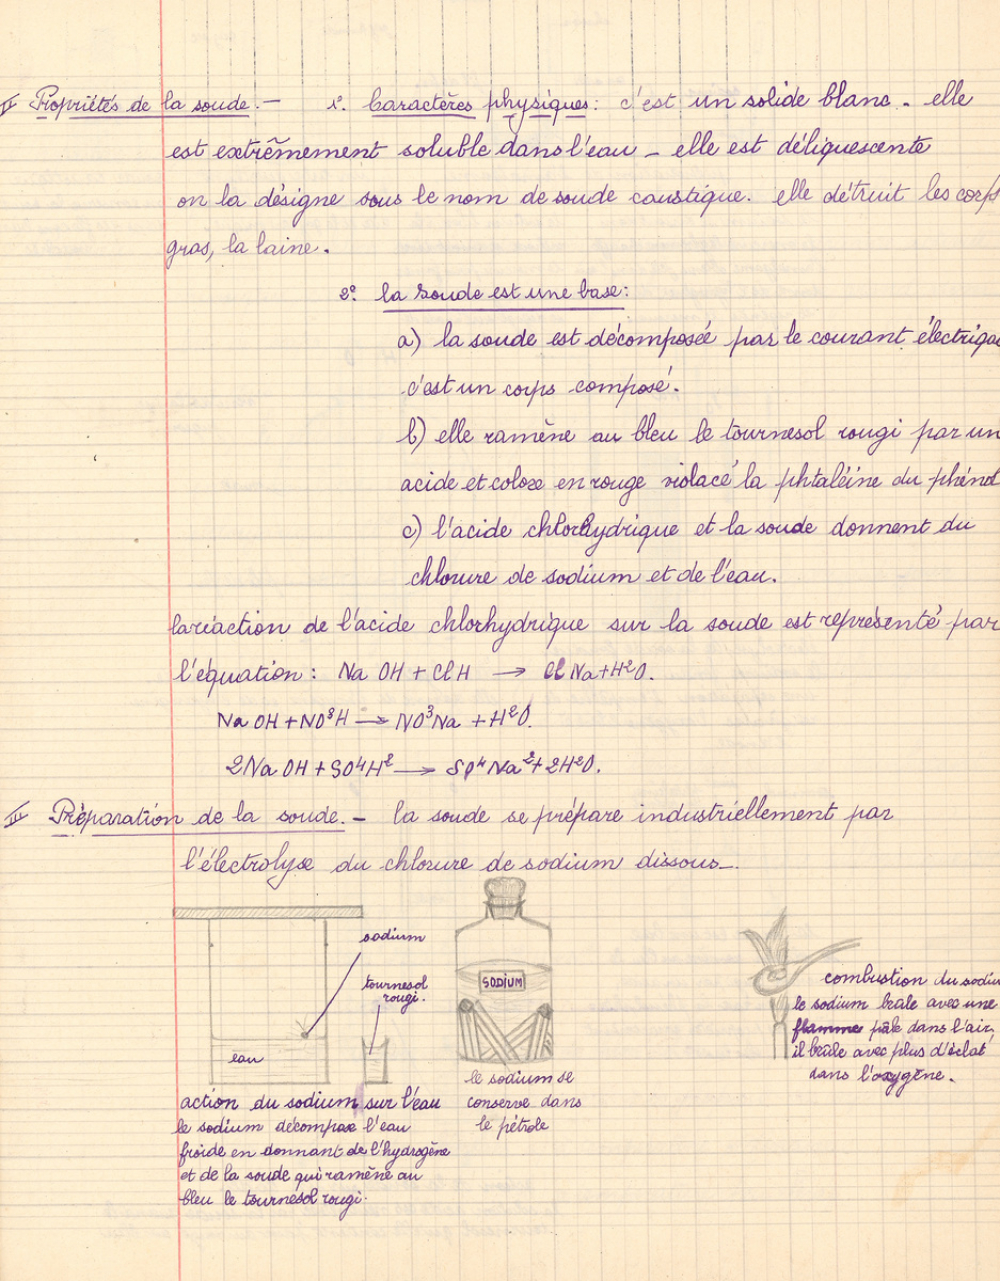 II Propriétés de la soude. — 1º. Caractères physiques : c'est un solide blanc. elle
est extrêmement soluble dans l'eau — elle est déliquescente
on la désigne sous le nom de soude caustique. elle détruit les corps
gras, la laine.
2º. la soude est une base :
a) la soude est décomposée par le courant électrique
c'est un corps composé.
b) elle ramène au bleu le tournesol rougi par un
acide et colore en rouge violacé la phtaléine du phénol
c) l'acide chlorhydrique et la soude donnent du
chlorure de sodium et de l'eau.
la réaction de l'acide chlorhydrique sur la soude est représenté par
l'équation : Na OH + Cl H → Cl Na + H²O.
Na OH + NO³H → NO³Na + H²O.
2Na OH + SO⁴H² → SO⁴Na² + 2H²O.
III Préparation de la soude. — la soude se prépare industriellement par
l'électrolyse du chlorure de sodium dissous.
sodium
tournesol
rougi.
eau
SODIUM
action du sodium sur l'eau
le sodium décompose l'eau
froide en donnant de l'hydrogène
et de la soude qui ramène au
bleu le tournesol rougi.
le sodium se
conserve dans
le pétrole
combustion du sodiu
le sodium brûle avec une
flamme pâle dans l'air,
il brûle avec plus d'éclat
dans l'oxygène.